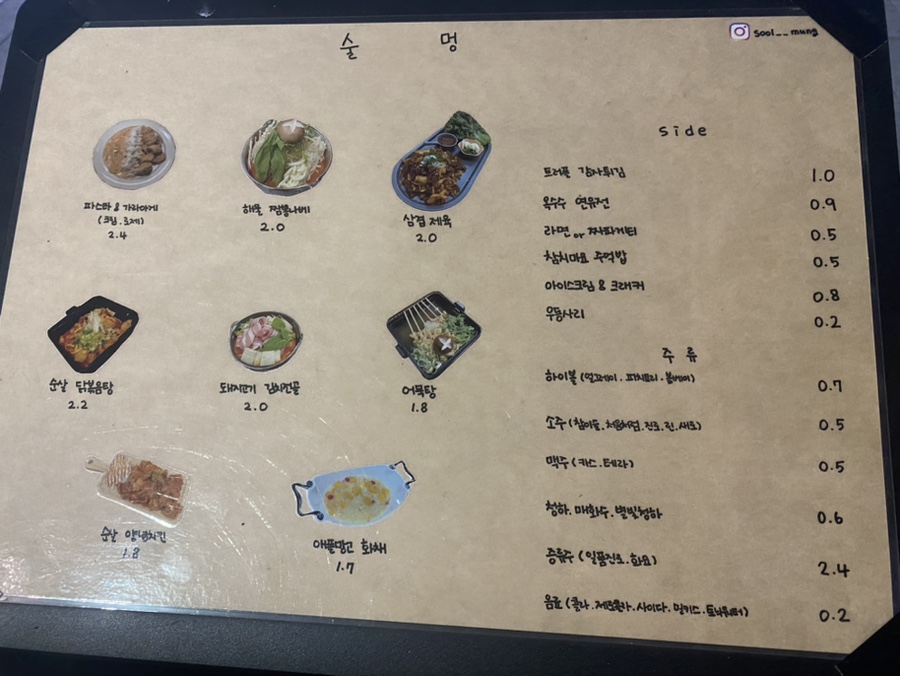 술 멍
sool__mung
파스타 & 가라아게
(크림.로제)
2.4
해물 짬뽕나베
2.0
삼겹 제육
2.0
순살 닭볶음탕
2.2
돼지고기 김치전골
2.0
어묵탕
1.8
순살 양념치킨
1.8
애플망고 화채
1.7
side
트러플 감자튀김 1.0
옥수수 연유전 0.9
라면 or 짜파게티 0.5
참치마요 주먹밥 0.5
아이스크림 & 크래커 0.8
우동사리 0.2
주류
하이볼 (얼그레이. 봄베이) 0.7
소주 (참이슬.처음처럼.진로.린.새로) 0.5
맥주 (카스.테라) 0.5
청하. 매화수. 별빛청하 0.6
증류주 (일품진로.화요) 2.4
음료 (콜라.제로콜라.사이다.밀키스.토닉워터) 0.2